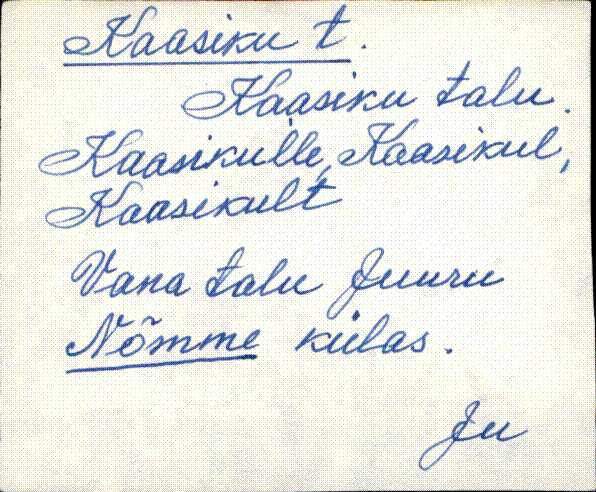 Kaasiku t.
Kaasiku talu.
Kaasikulle, Kaasikul,
Kaasikult
Vana talu Juuru
Nõmme külas.
Ju